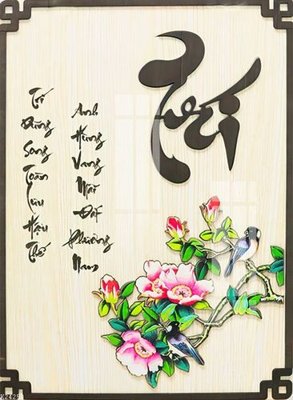 Trí
Trí Dũng Song Toàn Lưu Hậu Thế
Anh Hùng Vang Mãi Đất Phương Nam